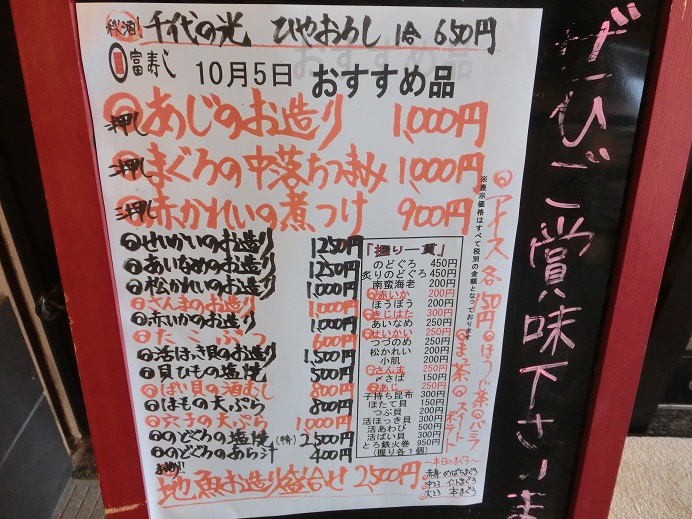 秋酒! 千代の光 ひやおろし 1合 650円
富寿し
10月5日 おすすめ品
押し あじのお造り 1,000円
押し まぐろの中落ちつまみ 1,000円
押し 赤かれいの煮つけ 900円
せいかいのお造り 1250円
あいなめのお造り 1250円
松かれいのお造り 1,000円
さんまのお造り 1,000円
赤いかのお造り 1,000円
たこぶつ 600円
活ほっき貝のお造り 1,500円
貝ひもの塩焼 500円
ばい貝の酒むし 800円
はもの天ぷら 800円
穴子の天ぷら 1,000円
のどぐろの塩焼 2,500円
のどぐろのあら汁 400円
地魚お造り盛合せ 2,500円
「握り一貫」
のどぐろ 450円
炙りのどぐろ 450円
南蛮海老 200円
赤いか 200円
ほうぼう 200円
きじはた 300円
あいなめ 250円
せいかい 250円
つづのめ 250円
松かれい 200円
小肌 200円
さんま 250円
〆さば 150円
あじ 250円
子持ち昆布 200円
ほたて貝 150円
つぶ貝 200円
活ほっき貝 300円
活あわび 500円
活ばい貝 300円
とろ鉄火巻 950円
(握り各1個)
※表示価格はすべて税別の金額となっております
アイス 各150円
ほうじ茶 バニラ
まっ茶 スイートポテト
～本日のまぐろ～
赤身 めばちまぐろ
本まぐろ
ぜひご賞味下さいませ